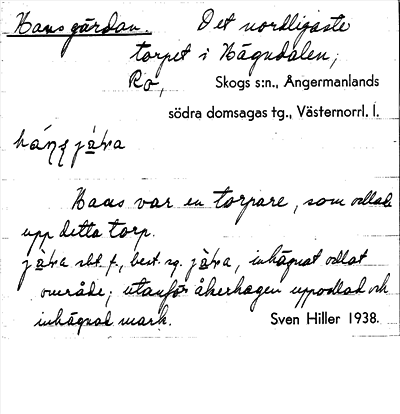 Hansgärdan. Det nordligaste
torpet i Hägndalen;
Ro, Skogs s:n., Ångermanlands
södra domsagas tg., Västernorrl. l.
Hans var en torpare, som odlade
upp detta torp.
sbt. f., best. sg. inhägnat odlat
område; utanför åkerhagen uppodlad och
inhägnad mark. Sven Hiller 1938.